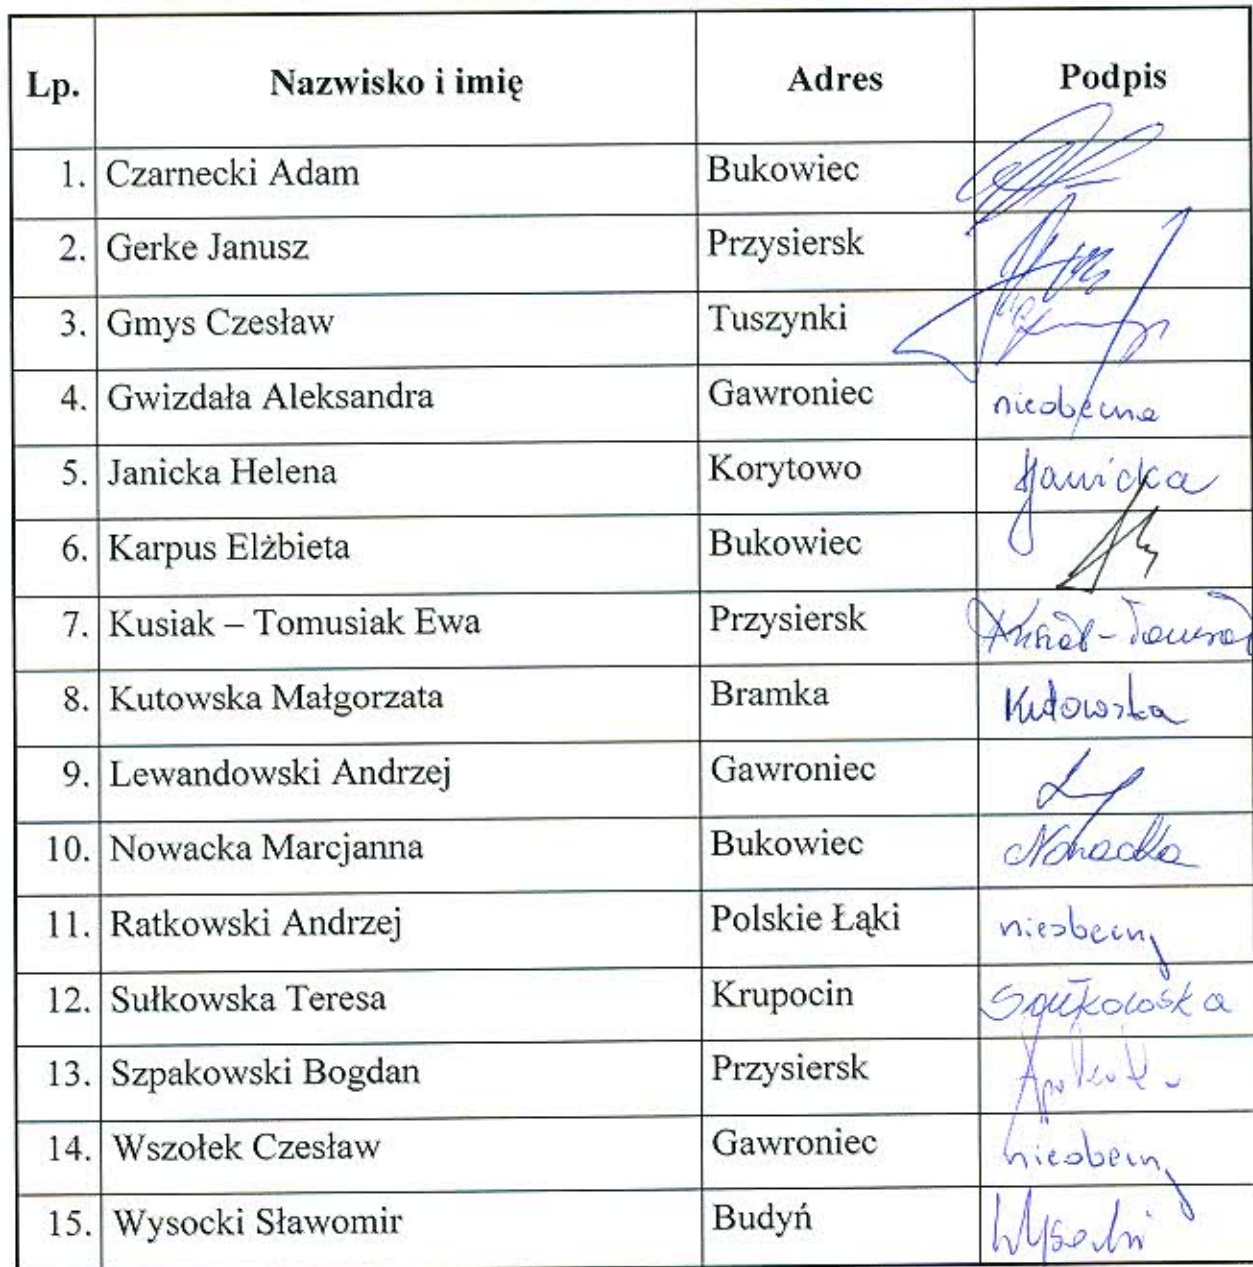 Lp. Nazwisko i imię Adres Podpis
1. Czarnecki Adam Bukowiec
2. Gerke Janusz Przysiersk
3. Gmys Czesław Tuszynki
4. Gwizdała Aleksandra Gawroniec nieobecna
5. Janicka Helena Korytowo HJanicka
6. Karpus Elżbieta Bukowiec
7. Kusiak – Tomusiak Ewa Przysiersk
8. Kutowska Małgorzata Bramka Kutowska
9. Lewandowski Andrzej Gawroniec
10. Nowacka Marcjanna Bukowiec Nowacka
11. Ratkowski Andrzej Polskie Łąki nieobecny
12. Sułkowska Teresa Krupocin Sułkowska
13. Szpakowski Bogdan Przysiersk
14. Wszołek Czesław Gawroniec nieobecny
15. Wysocki Sławomir Budyń Wysocki